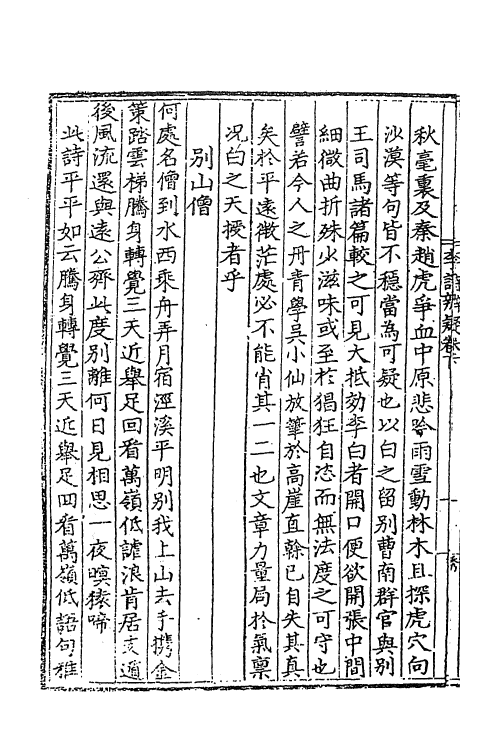 秋毫裏及秦趙虎爭血中原悲吟雨雪動林木且探虎穴向
沙漠等句皆不穩當為可疑也以白之留別曹南群官與別
王司馬諸篇較之可見大抵効李白者開口便欲開張中間
細微曲折殊少滋味或至於猖狂自恣而無法度之可守也
譬若今人之丹青學吳小仙放筆於高崖直榦已自失其真
矣於平遠微茫處必不能肖其一二也文章力量局於氣禀
况白之天授者乎
別山僧
何處名僧到水西乘舟弄月宿涇溪平明別我上山去手攜金
策踏雲梯騰身轉覺三天近舉足回看萬嶺低謔浪肯居支遁
後風流還與遠公齊此度別離何日見相思一夜暝猿啼
此詩平平如云騰身轉覺三天近舉足回看萬嶺低語句雅
李詩辨疑卷下